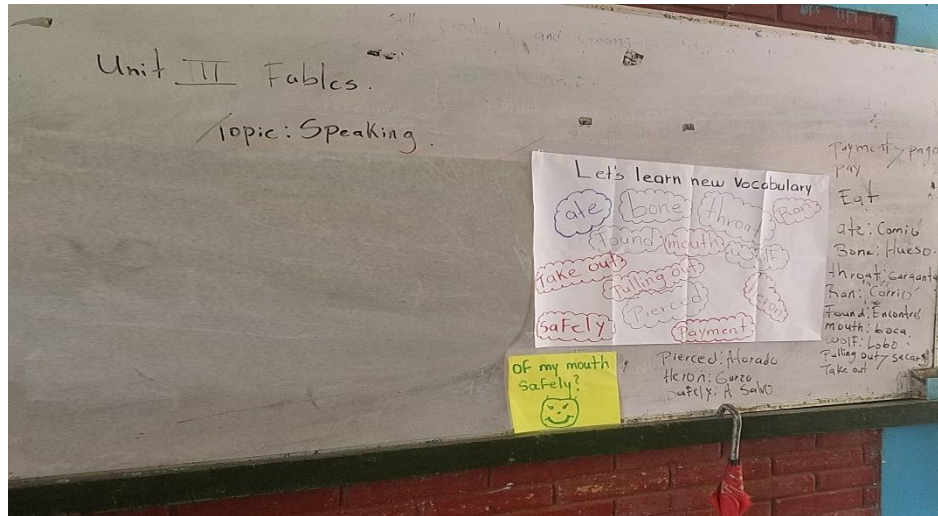 Unit III Fables.
Topic: Speaking.
Let's learn new vocabulary
ate bone throat Ran
found mouth wolf
Take out Pulling out Heron
Pierced
Safely Payment
of my mouth
safely?
Payment > pago
pay
Eat
ate: Comió
Bone: Hueso.
throat: Garganta
Ran: Corrió
Found: Encontró
mouth: boca
wolf: Lobo
Pulling out > sacar
Take out
Pierced: Horado
Heron: Garza
Safely: A Salvo